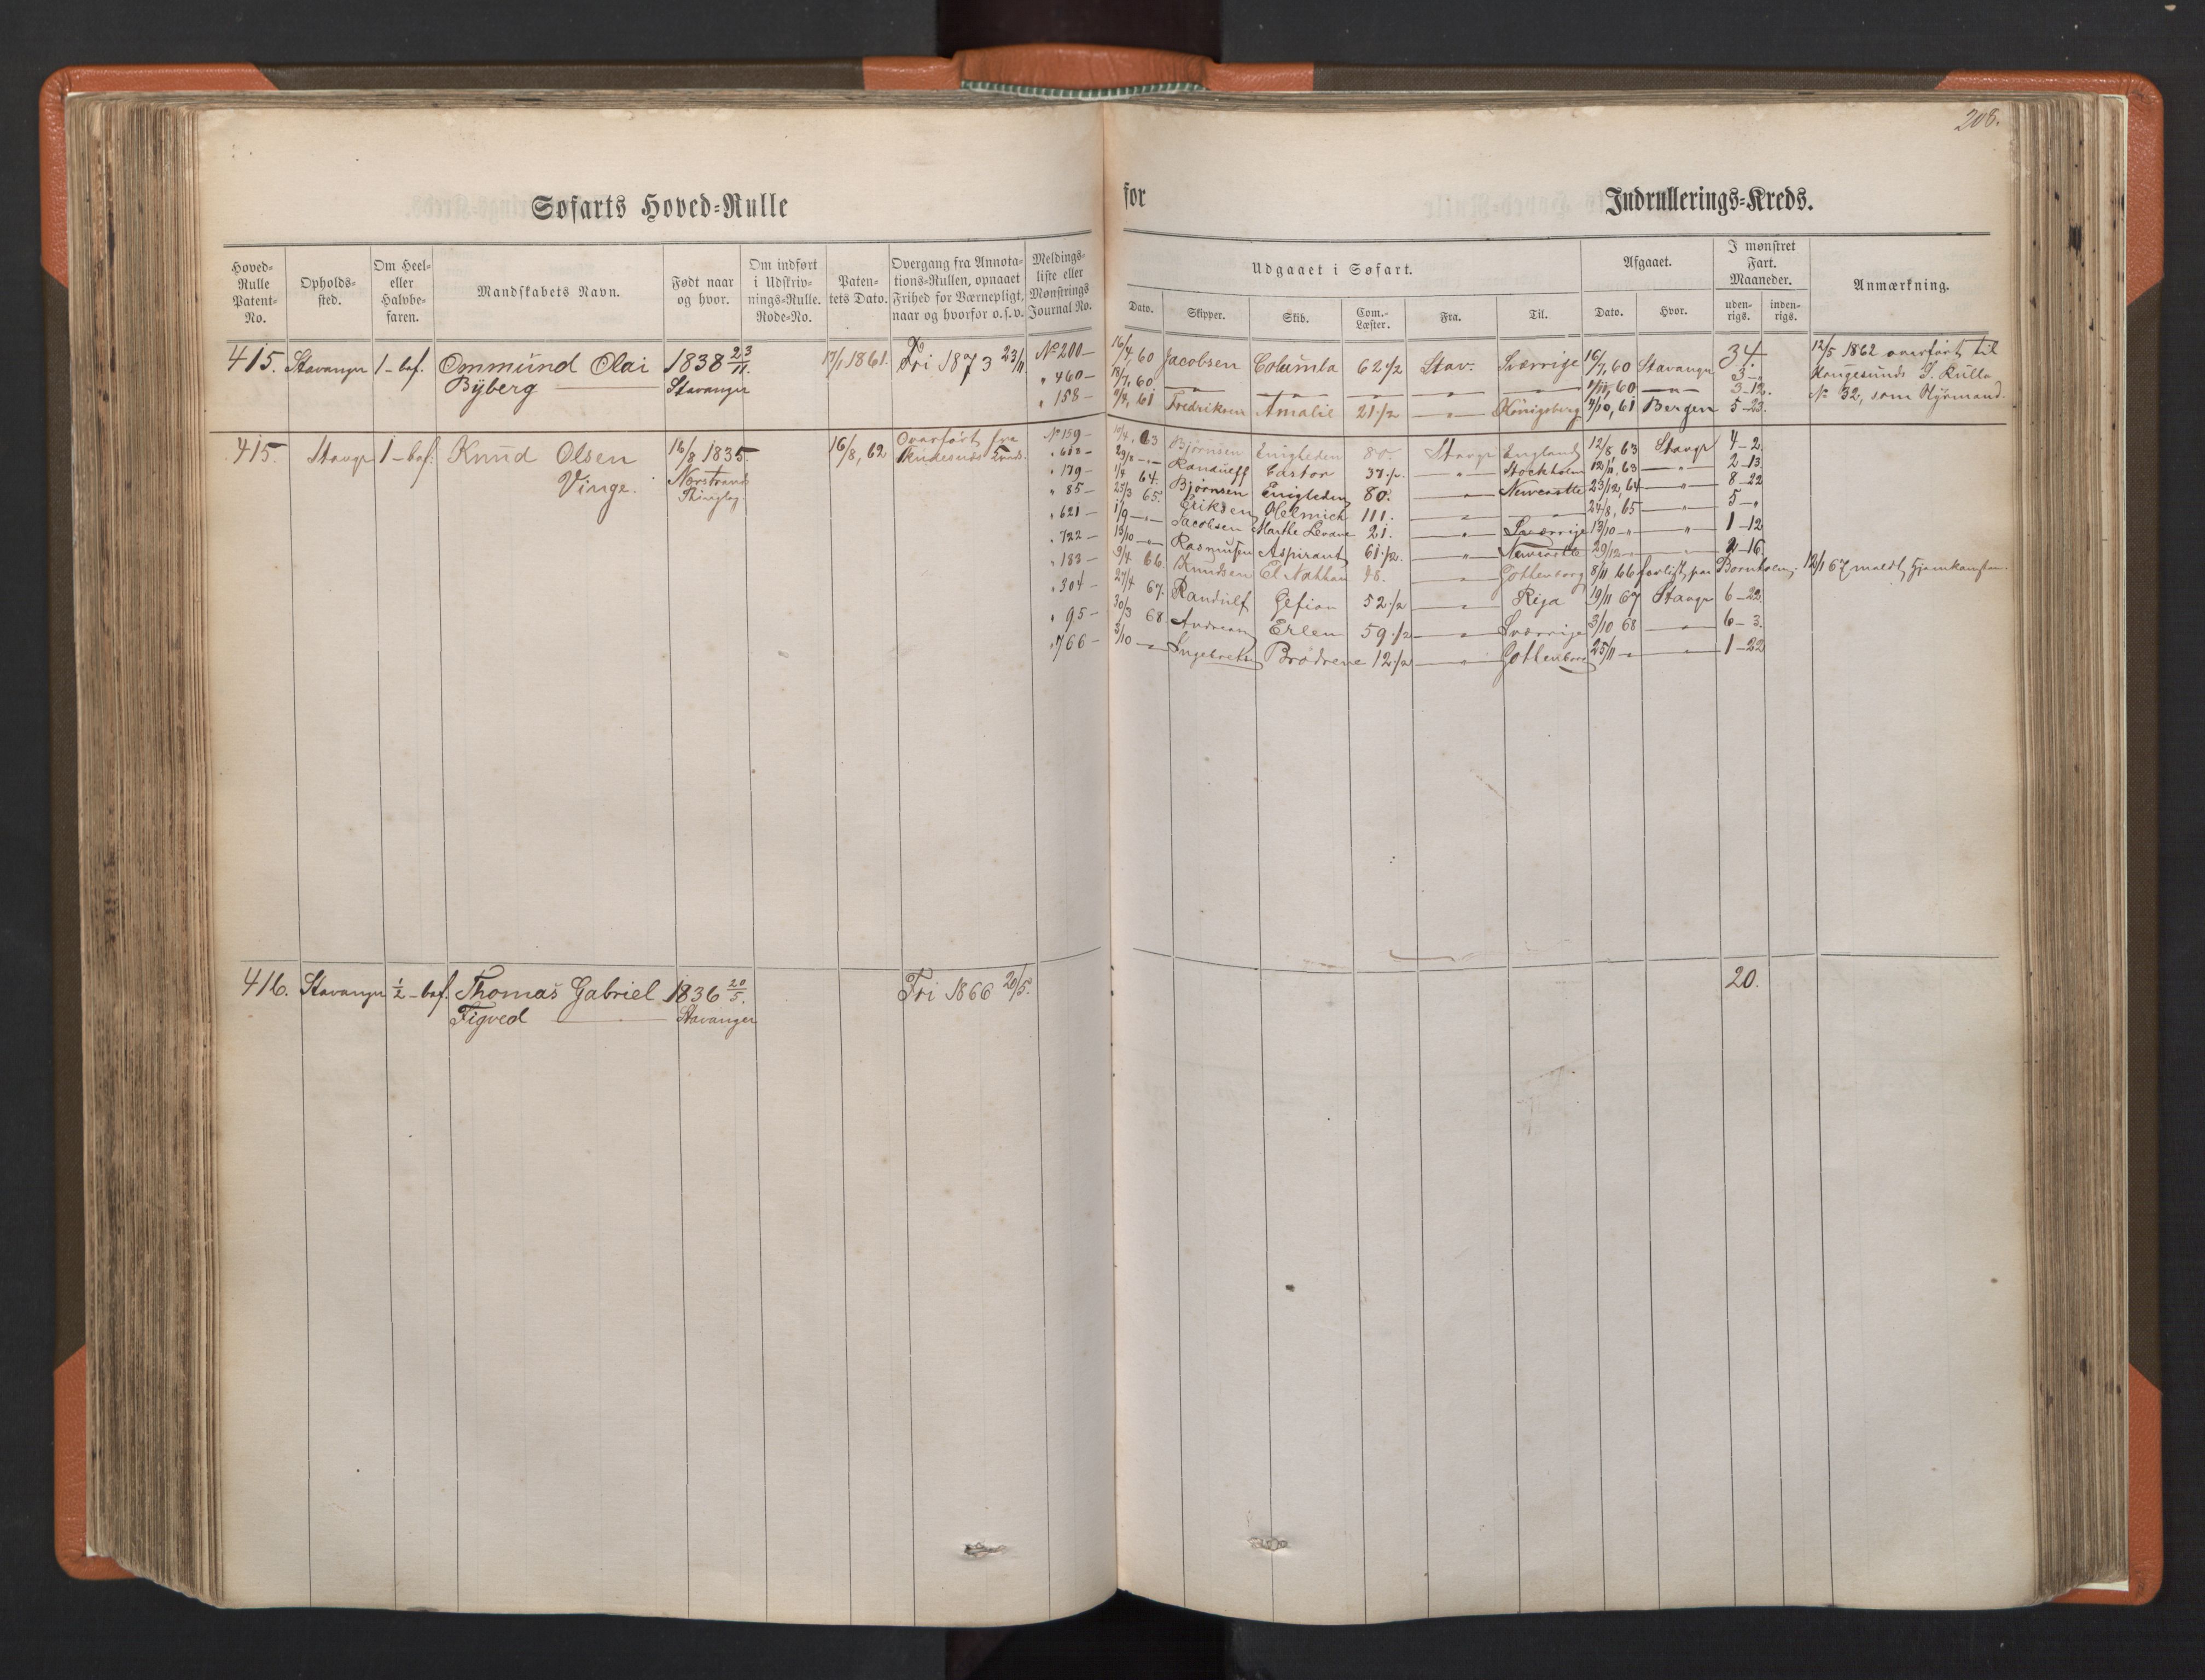 208.
Søfarts Hoved-Rulle for Indrullerings-Kreds.
Hoved-Rulle Patent-No.
Opholds-sted.
Om Heel- eller Halvbe-faren.
Mandskabets Navn.
Født naar og hvor.
Om indført i Udskriv-nings-Rulle. Rode-No.
Paten-tets Dato.
Overgang fra Annota-tions-Rullen, opnaaet Frihed for Værnepligt, naar og hvorfor o.s.v.
Meldings-liste eller Mønstrings Journal No.
Udgaaet i Søfart.
Dato.
Skipper.
Skib.
Com.-Læster.
Fra.
Til.
Afgaaet.
Dato.
Hvor.
I mønstret Fart. Maaneder.
uden-rigs.
inden-rigs.
Anmærkning.
415. Stavanger 1-bef. Ommund Olai 1838 23/11. 17/1 1861. Fri 1873 23/11 No 200- 16/4, 60 Jacobsen Columba 62 1/2 Stav. Sverrige 16/7, 60 Stavanger 34. 12/5 1862 overført til
Byberg Stavanger " 460- 18/7, 60 " " " " " 60 " 3- Haugesunds S. Rulle
" 158- 9/4, 61 Fredriksen Amalie 21 1/2 " Königsberg 9/10, 61 Bergen 3-12. 5-23. No 32, som Styrmand.
415. Stavgr 1-bef. Knud Olsen 16/8 1835. 16/8, 62 Overført fra No 159- 63 Bjørnsen Enigheden 80. Stavgr England 12/8 63 Stavgr 4-2
Vinge. Nerstrands " 618- Castor 37 1/2 " Stockholm 12/11, 63 " 2-13.
Thinglag. " 179- 1/4 64. Bjørnsen Enigheden 80. " Newcastle 23/12, 64 " 8-22
" 85- 25/3 65. Eriksen Helmich 111. " " 24/8, 65 " 5-"
" 621- 1/9 -"- Jacobsen Marthe 21. " Sverrige 13/10 " " 1-12
" 722- 13/10 -"- Rasmusen Aspirant 61 1/2. " Newcastle 29/12 " " 2-16
" 183- 9/4 66. Knudsen El Nathan " Gothenborg 8/11 66 forlist paa Bornholm; 12/1 67 meldt Hjemkomsten.
" 304- 27/4 67. Randulf Gefion 52 1/2 " Riga 19/11 67 Stavgr 6-22.
" 95- 30/3 68. Erlen 59 1/2 " Sverrige 3/10 68 " 6-3.
" 766- 5/10 " Ingebretsen Brødrene 12 1/2 " Gothenborg 25/11 " " 1-22
416. Stavanger 1/2-bef. Thomas Gabriel 1836 20/5. Fri 1866 20/5. 20.
Figved Stavanger